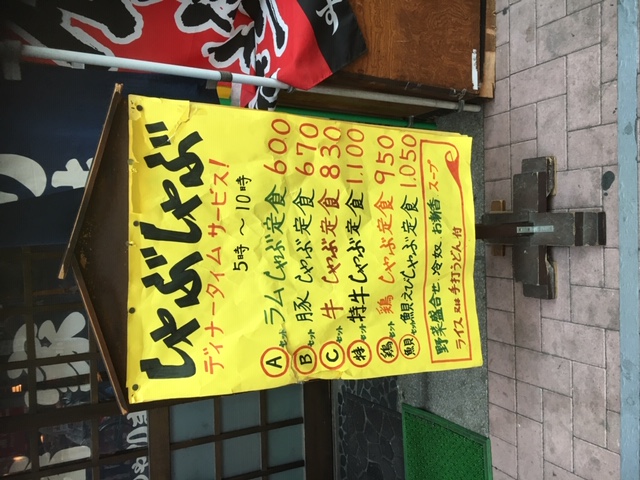 しゃぶしゃぶ
ディナータイムサービス!
5時～10時
Aセット ラムしゃぶ定食 600
Bセット 豚しゃぶ定食 670
Cセット 牛しゃぶ定食 830
特セット 特牛しゃぶ定食 1,100
鶏セット 鶏しゃぶ定食 950
セット えびしゃぶ定食 1,050
野菜盛合せ 冷奴 お新香 スープ
ライス又は手打うどん付
家